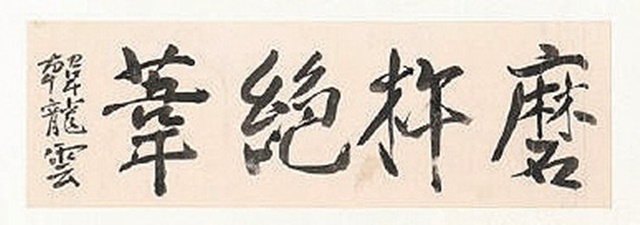 磨杵絶葦
韓龍雲